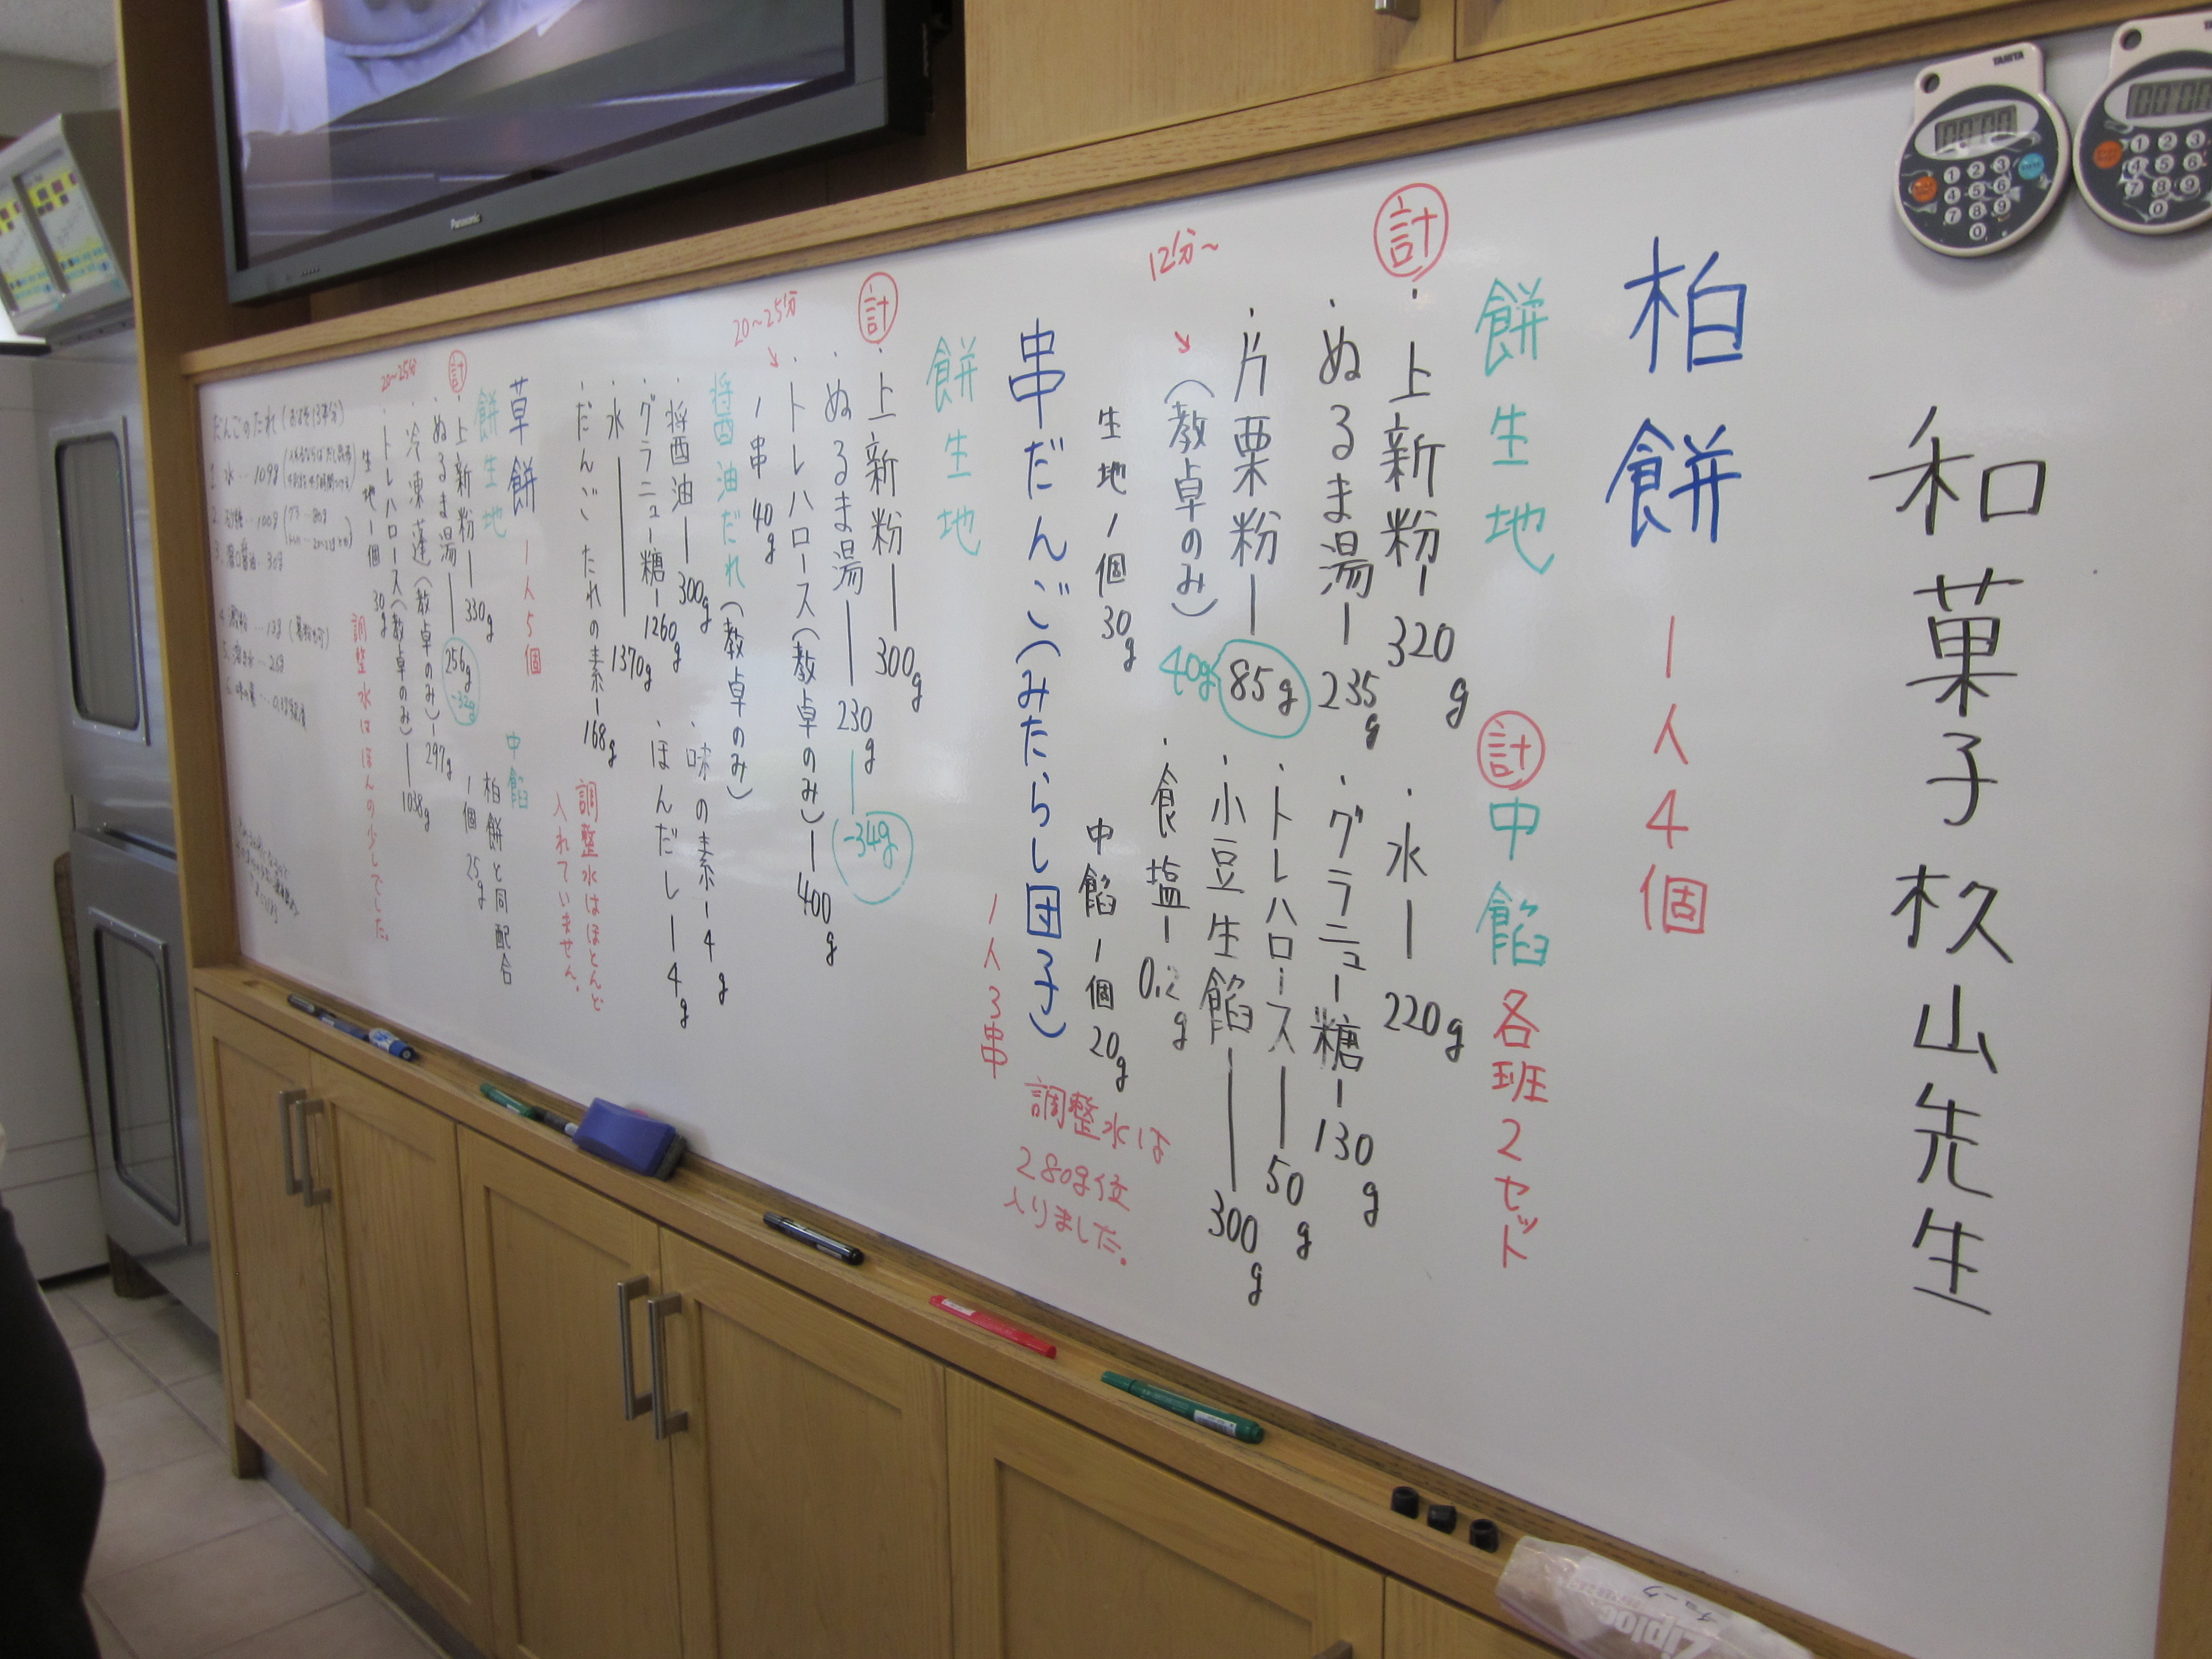 和菓子 杦山先生
柏餅 1人4個
餅生地
計
・上新粉－320g
・ぬるま湯－235g
・片栗粉－85g
40g
12分～
↘
(教卓のみ)
生地1個30g
計
中餡 各班2セット
・水－220g
・グラニュー糖－130g
・トレハロース－50g
・小豆生餡－300g
・食塩－0.2g
中餡1個20g
調整水は
280g位
入りました。
串だんご(みたらし団子)
1人3串
餅生地
計
・上新粉－300g
・ぬるま湯－230g
-34g
・トレハロース(教卓のみ)－400g
20～25分
↘
1串40g
醤油だれ(教卓のみ)
・醤油－300g
・グラニュー糖－1260g
・水－1370g
・だんごたれの素－168g
・味の素－4g
・ほんだし－4g
調整水はほとんど
入れていません。
草餅 1人5個
餅生地
計
・上新粉－330g
・ぬるま湯－256g
-32g
・冷凍蓬(教卓のみ)－297g
・トレハロース(教卓のみ)－1038g
20～25分
生地1個30g
中餡
柏餅と同配合
1個25g
調整水はほんの少しでした。
だんごのたれ
1. 水…109g
3. 濃口醤油…30g
Panasonic
TANITA
00:00
1 2 3
4 5 6
7 8 9
0
00:00
1 2 3
4 5 6
7 8 9
0
Ziploc
チョーク